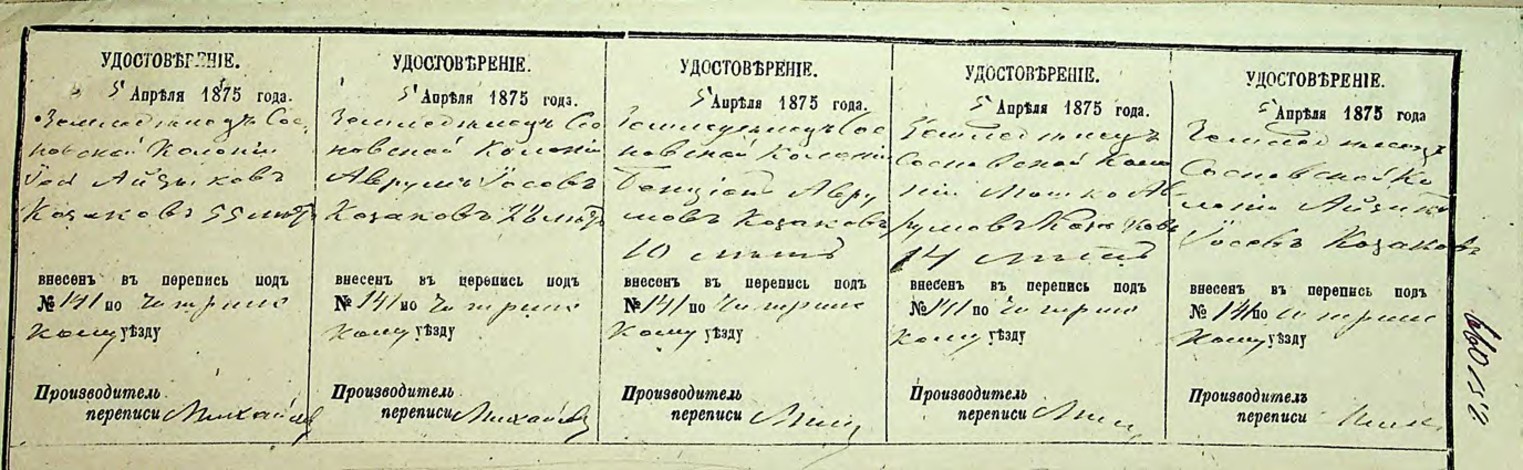 УДОСТОВѢРЕНІЕ.
5 Апрѣля 1875 года.
Земледѣлецъ Сос-
новской Колоніи
Іос Айзиковъ
Козаковъ 55 лѣтъ
внесенъ въ перепись подъ
№ 141 по Чигринс
кому уѣзду
Производитель
переписи Михайлов
УДОСТОВѢРЕНІЕ.
5 Апрѣля 1875 года.
Земледѣлецъ Сос
новской Колоніи
Аврумъ Іосевъ
Козаковъ лѣтъ
внесенъ въ перепись подъ
№ 141 по Чигринс
кому уѣзду
Производитель
переписи Михайлов
УДОСТОВѢРЕНІЕ.
5 Апрѣля 1875 года.
Земледѣлецъ Сос
новской Колоніи
Бенціонъ Авру
мовъ Козаковъ
10 лѣтъ
внесенъ въ перепись подъ
№ 141 по Чигринс
кому уѣзду
Производитель
переписи Мих
УДОСТОВѢРЕНІЕ.
5 Апрѣля 1875 года.
Земледѣлецъ
Сосновской Коло
ніи Мошко Ав
румовъ Козаковъ
14 лѣтъ
внесенъ въ перепись подъ
№ 141 по Чигринс
кому уѣзду
Производитель
переписи Мих
УДОСТОВѢРЕНІЕ.
5 Апрѣля 1875 года
Земледѣлецъ
Сосновской Ко
лоніи Айзикъ
Іосевъ Козаковъ
внесенъ въ перепись подъ
№ 141 по Чигринс
кому уѣзду
Производитель
переписи Мих